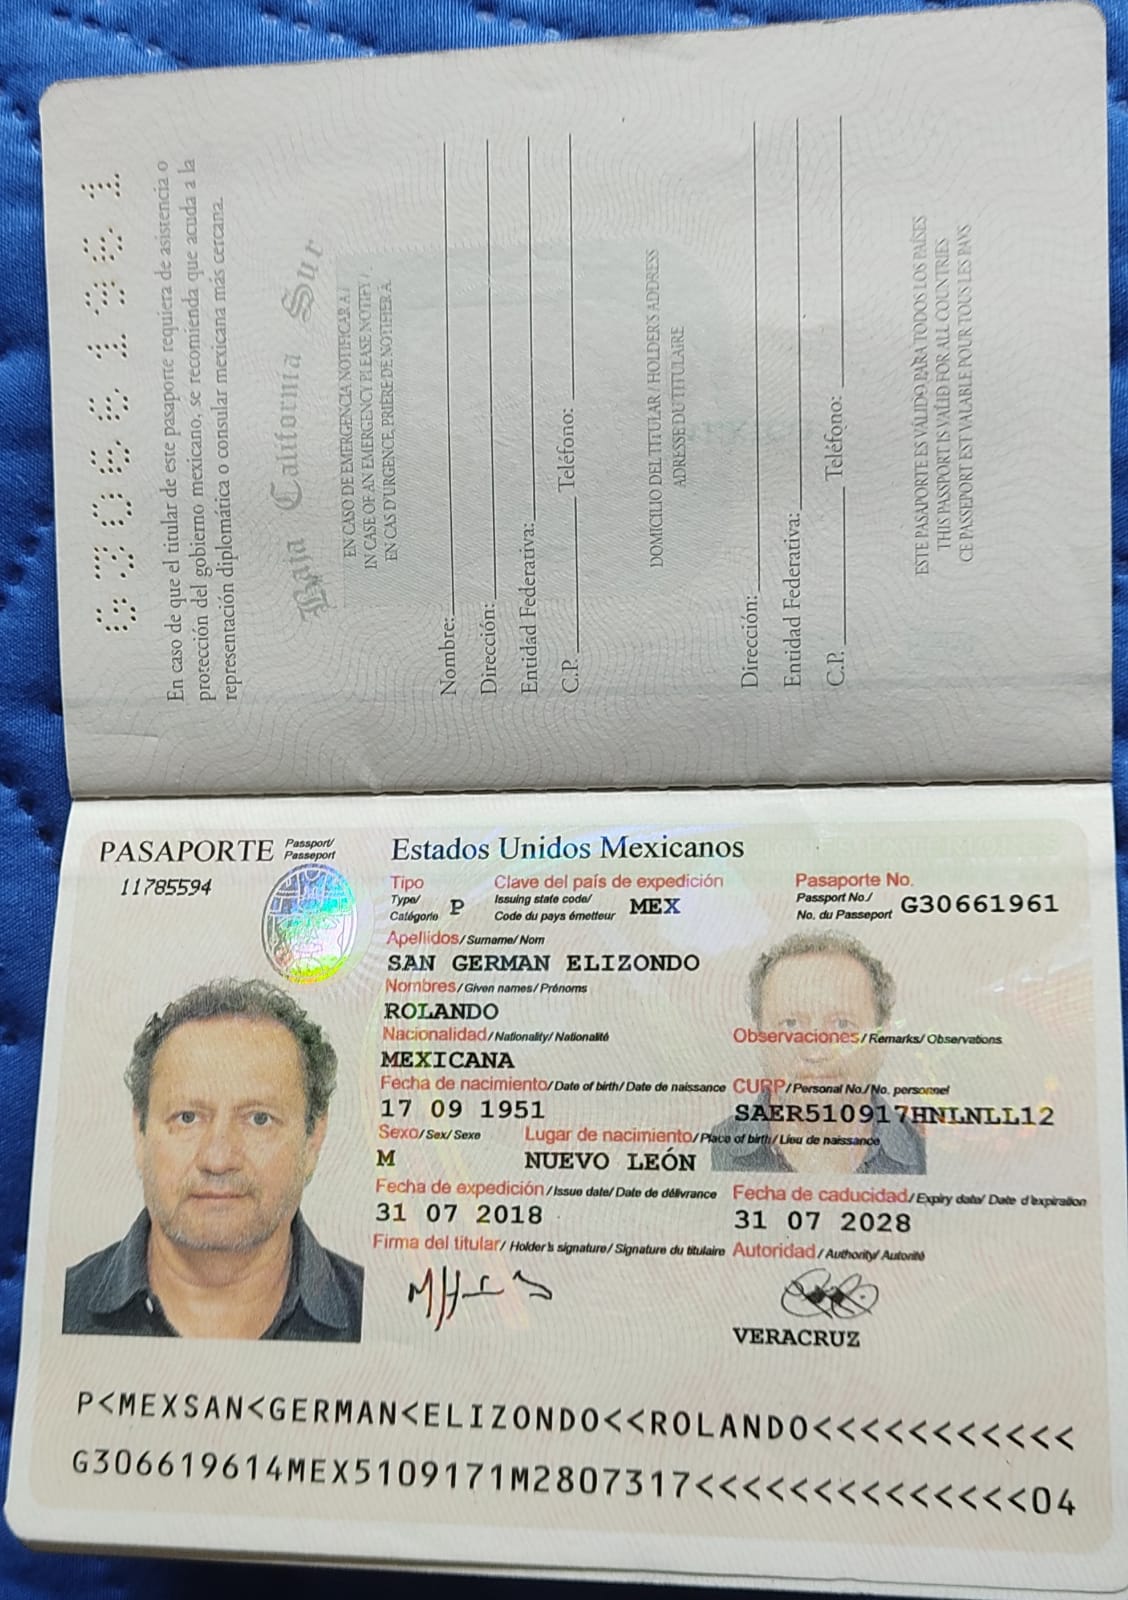 G30661961
En caso de que el titular de este pasaporte requiera de asistencia o
protección del gobierno mexicano, se recomienda que acuda a la
representación diplomática o consular mexicana más cercana.
Baja California Sur
EN CASO DE EMERGENCIA NOTIFICAR A /
IN CASE OF AN EMERGENCY PLEASE NOTIFY /
EN CAS D'URGENCE, PRIÈRE DE NOTIFIER À
Nombre:
Dirección:
Entidad Federativa:
C.P. Teléfono:
DOMICILIO DEL TITULAR / HOLDER'S ADDRESS
ADRESSE DU TITULAIRE
Dirección:
Entidad Federativa:
C.P. Teléfono:
ESTE PASAPORTE ES VÁLIDO PARA TODOS LOS PAÍSES
THIS PASSPORT IS VALID FOR ALL COUNTRIES
CE PASSEPORT EST VALABLE POUR TOUS LES PAYS
PASAPORTE Passport/ Passeport
11785594
Estados Unidos Mexicanos
Tipo Clave del país de expedición Pasaporte No.
Type/ Issuing state code/ Passport No./
Catégorie P Code du pays émetteur MEX No. du Passeport G30661961
Apellidos/ Surname/ Nom
SAN GERMAN ELIZONDO
Nombres/ Given names/ Prénoms
ROLANDO
Nacionalidad/ Nationality/ Nationalité Observaciones/ Remarks/ Observations
MEXICANA
Fecha de nacimiento/ Date of birth/ Date de naissance CURP/ Personal No./ No. personnel
17 09 1951 SAER510917HNLNLL12
Sexo/ Sex/ Sexe Lugar de nacimiento/ Place of birth/ Lieu de naissance
M NUEVO LEÓN
Fecha de expedición/ Issue date/ Date de délivrance Fecha de caducidad/ Expiry date/ Date d'expiration
31 07 2018 31 07 2028
Firma del titular/ Holder's signature/ Signature du titulaire Autoridad/ Authority/ Autorité
VERACRUZ
P<MEXSAN<GERMAN<ELIZONDO<<ROLANDO<<<<<<<<<<<
G306619614MEX5109171M2807317<<<<<<<<<<<<<<04